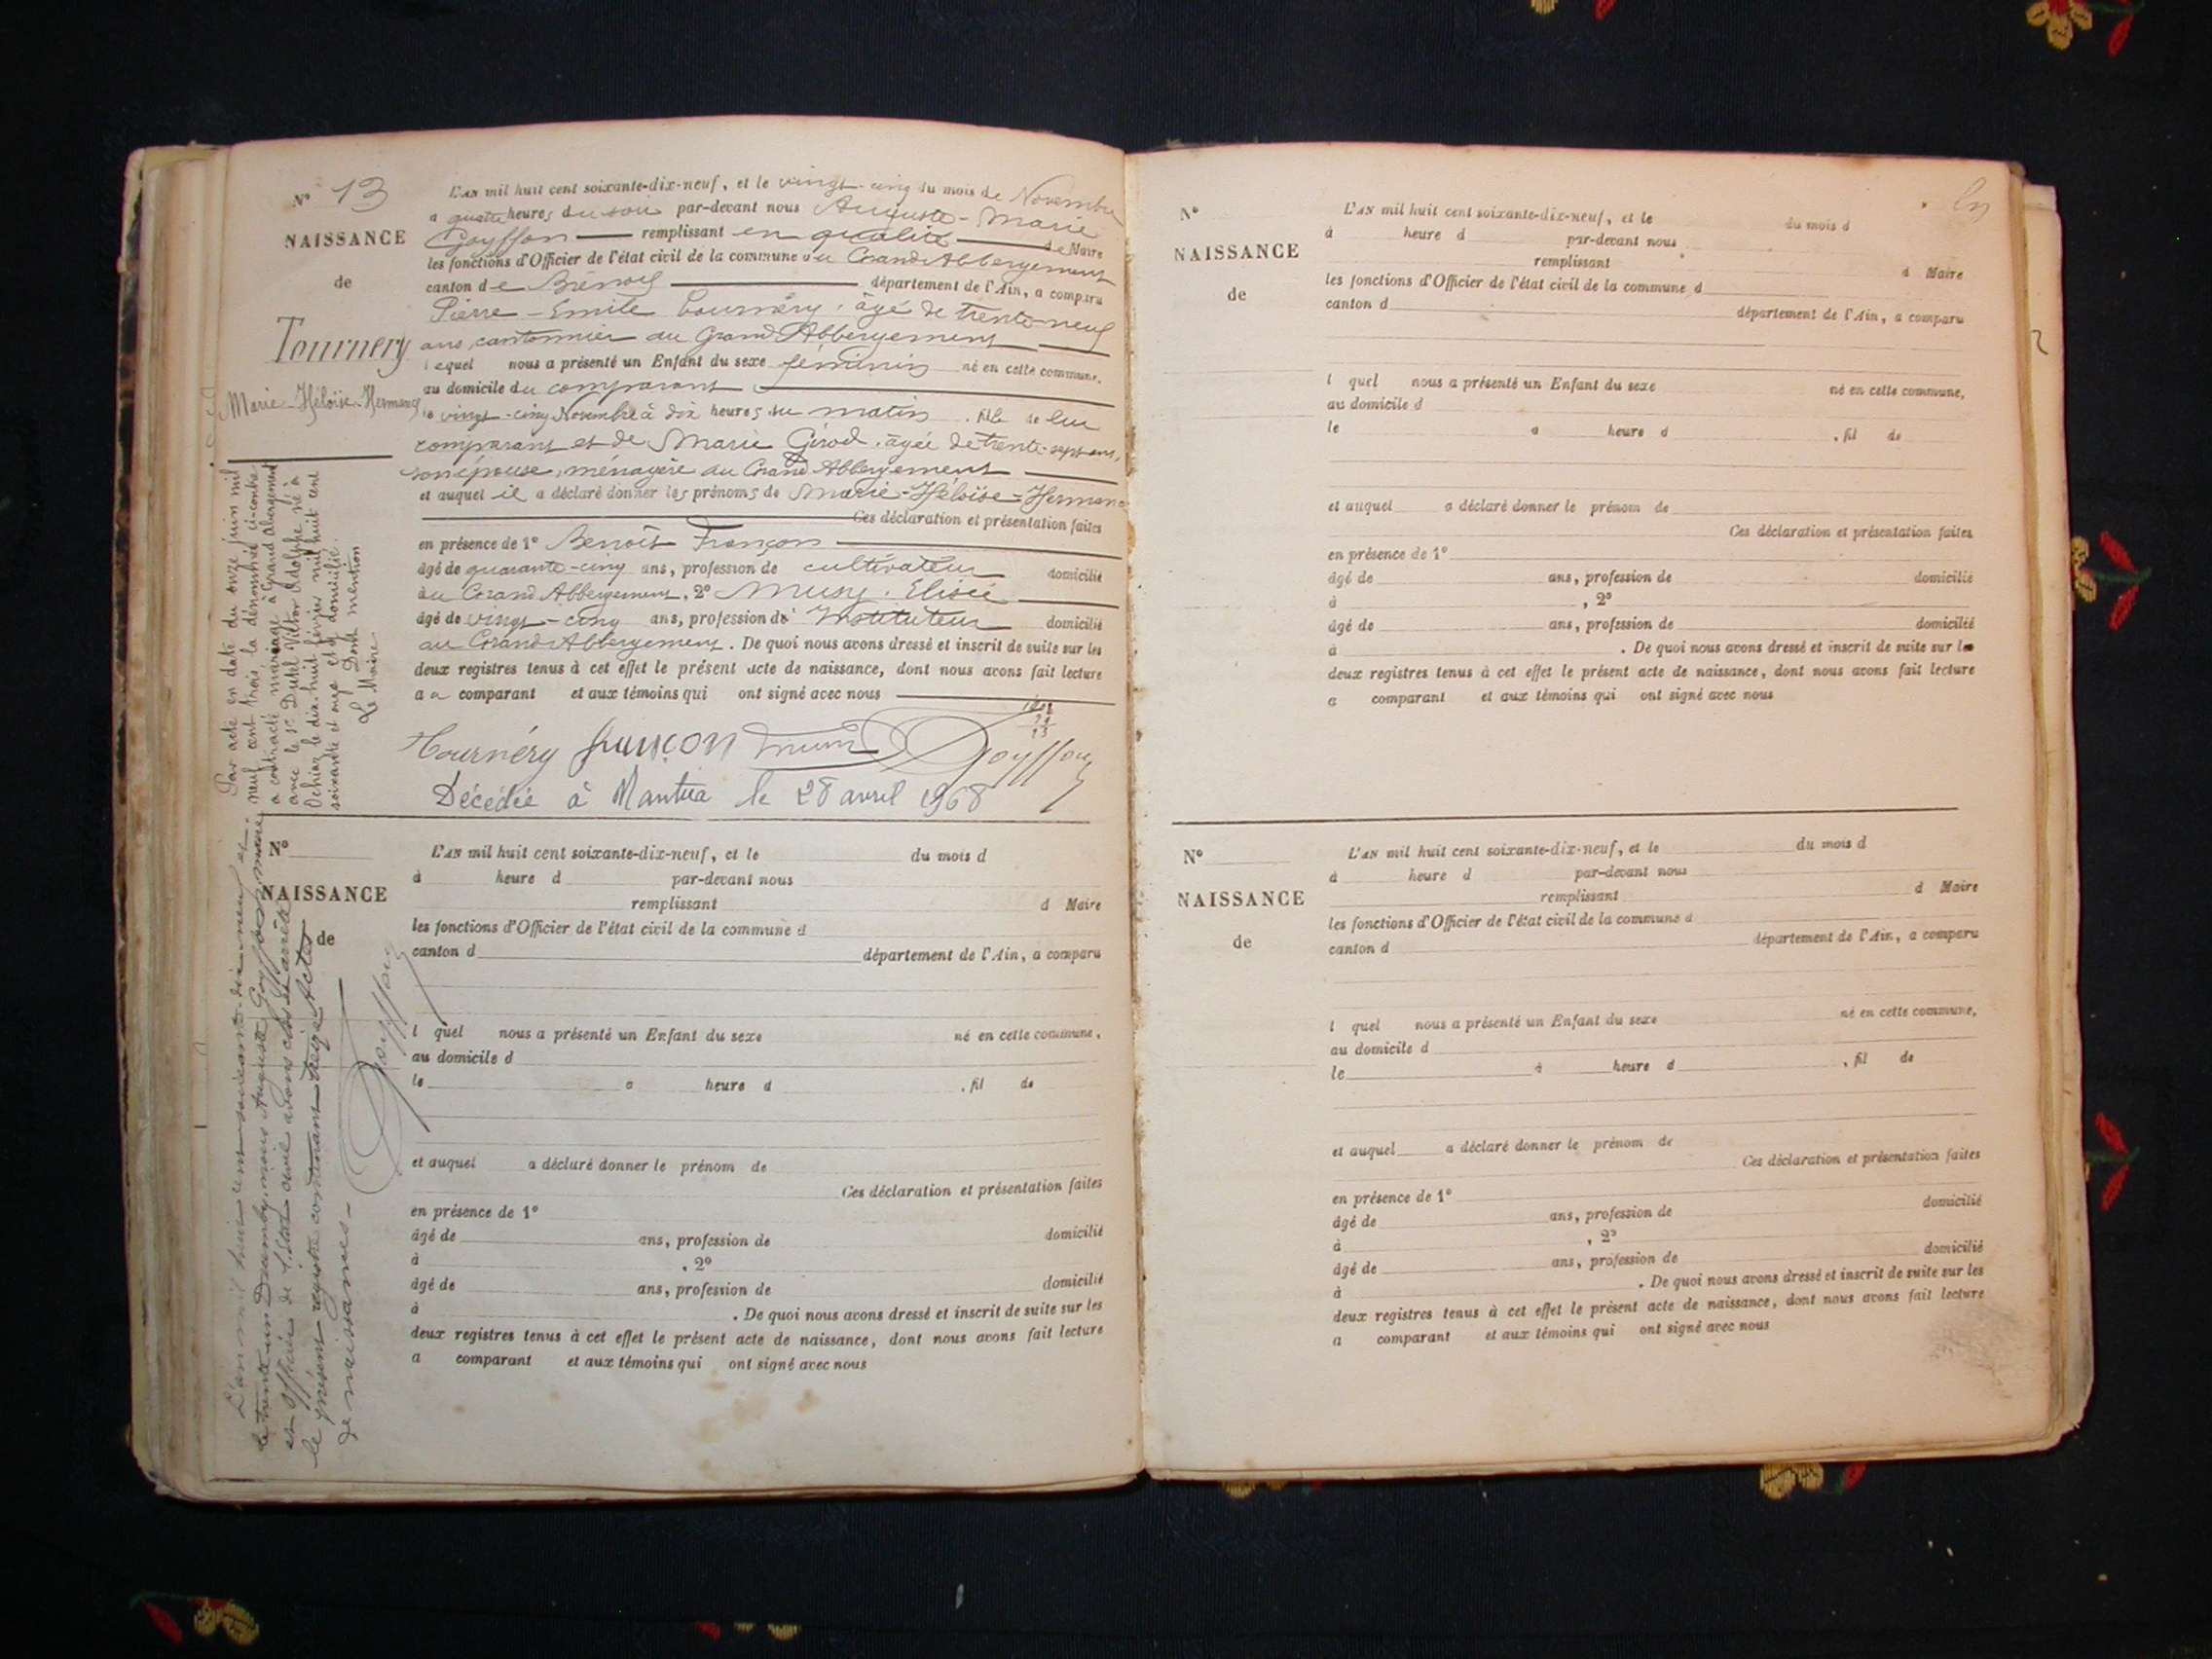 N° 13
NAISSANCE
de
Tournery
Marie-Héloïse-Hermance
L'AN mil huit cent soixante-dix-neuf, et le vingt-cinq du mois de Novembre
à quatre heures du soir par-devant nous Auguste-Marie
Goyffon remplissant en qualité de Maire
les fonctions d'Officier de l'état civil de la commune du Grand Abbergement
canton de Brénod département de l'Ain, a comparu
Pierre-Emile Tournéry, âgé de trente-neuf
ans, cantonnier au Grand Abbergement
lequel nous a présenté un Enfant du sexe féminin né en cette commune,
au domicile du comparant
le vingt-cinq Novembre à dix heures du matin, fille de lui
comparant et de Marie Girod, âgée de trente-sept ans,
son épouse, ménagère au Grand Abbergement
et auquel il a déclaré donner les prénoms de Marie-Héloïse-Hermance
Ces déclaration et présentation faites
en présence de 1° Benoît Françon
âgé de quarante-cinq ans, profession de cultivateur domicilié
au Grand Abbergement, 2° Muny, Elisée
âgé de vingt-cinq ans, profession d' Instituteur domicilié
au Grand Abbergement. De quoi nous avons dressé et inscrit de suite sur les
deux registres tenus à cet effet le présent acte de naissance, dont nous avons fait lecture
au comparant et aux témoins qui ont signé avec nous
Tournéry françon Goyffon
Décédée à Nantua le 28 avril 1968
Par acte en date du onze juin mil
neuf cent trois la dénommée ci-contre
a contracté mariage à Grand Abergement
avec le sr Dutel Victor Adolphe né à
Ochiaz le dix-huit février mil huit cent
soixante et onze et y domicilié.
Dont mention
Le Maire
L'an mil huit cent soixante-dix-neuf et
le trente-un Décembre, nous Auguste Goyffon, maire
et officier de l'état civil avons clos et arrêté
le présent registre contenant treize Actes
de naissances-
Goyffon
N°
NAISSANCE
de
L'AN mil huit cent soixante-dix-neuf, et le du mois d
à heure d par-devant nous
remplissant d Maire
les fonctions d'Officier de l'état civil de la commune d
canton d département de l'Ain, a comparu
l quel nous a présenté un Enfant du sexe né en cette commune,
au domicile d
le à heure d , fil de
et auquel a déclaré donner le prénom de
Ces déclaration et présentation faites
en présence de 1°
âgé de ans, profession de domicilié
à , 2°
âgé de ans, profession de domicilié
à . De quoi nous avons dressé et inscrit de suite sur les
deux registres tenus à cet effet le présent acte de naissance, dont nous avons fait lecture
a comparant et aux témoins qui ont signé avec nous
N°
NAISSANCE
de
L'AN mil huit cent soixante-dix-neuf, et le du mois d
à heure d par-devant nous
remplissant d Maire
les fonctions d'Officier de l'état civil de la commune d
canton d département de l'Ain, a comparu
l quel nous a présenté un Enfant du sexe né en cette commune,
au domicile d
le à heure d , fil de
et auquel a déclaré donner le prénom de
Ces déclaration et présentation faites
en présence de 1°
âgé de ans, profession de domicilié
à , 2°
âgé de ans, profession de domicilié
à . De quoi nous avons dressé et inscrit de suite sur les
deux registres tenus à cet effet le présent acte de naissance, dont nous avons fait lecture
a comparant et aux témoins qui ont signé avec nous
N°
NAISSANCE
de
L'AN mil huit cent soixante-dix-neuf, et le du mois d
à heure d par-devant nous
remplissant d Maire
les fonctions d'Officier de l'état civil de la commune d
canton d département de l'Ain, a comparu
l quel nous a présenté un Enfant du sexe né en cette commune,
au domicile d
le à heure d , fil de
et auquel a déclaré donner le prénom de
Ces déclaration et présentation faites
en présence de 1°
âgé de ans, profession de domicilié
à , 2°
âgé de ans, profession de domicilié
à . De quoi nous avons dressé et inscrit de suite sur les
deux registres tenus à cet effet le présent acte de naissance, dont nous avons fait lecture
a comparant et aux témoins qui ont signé avec nous